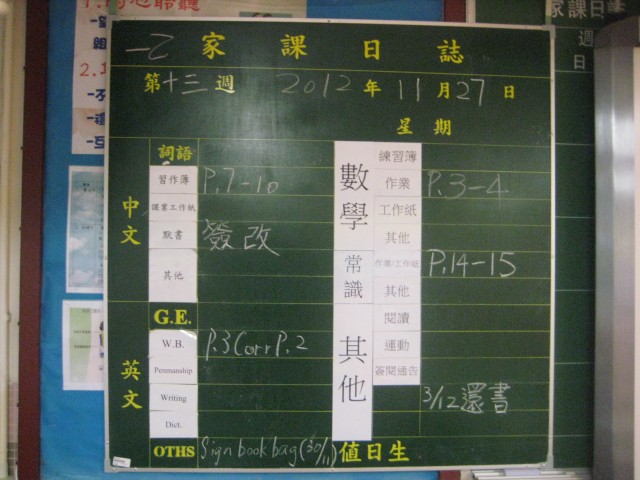 一乙 家課日誌
第十三週 2012年11月27日
星期
中文
詞語
習作簿 P.7-10
課業工作紙
默書 簽改
其他
英文
G.E.
W.B. P.3 Corr P.2
Penmanship
Writing
Dict.
OTHS Sign book bag (30/11)
數學
練習簿
作業 P.3-4
工作紙
其他
常識
作業/工作紙 P.14-15
其他
其他
閱讀
運動
簽閱通告
3/12還書
值日生
家課日
週
日